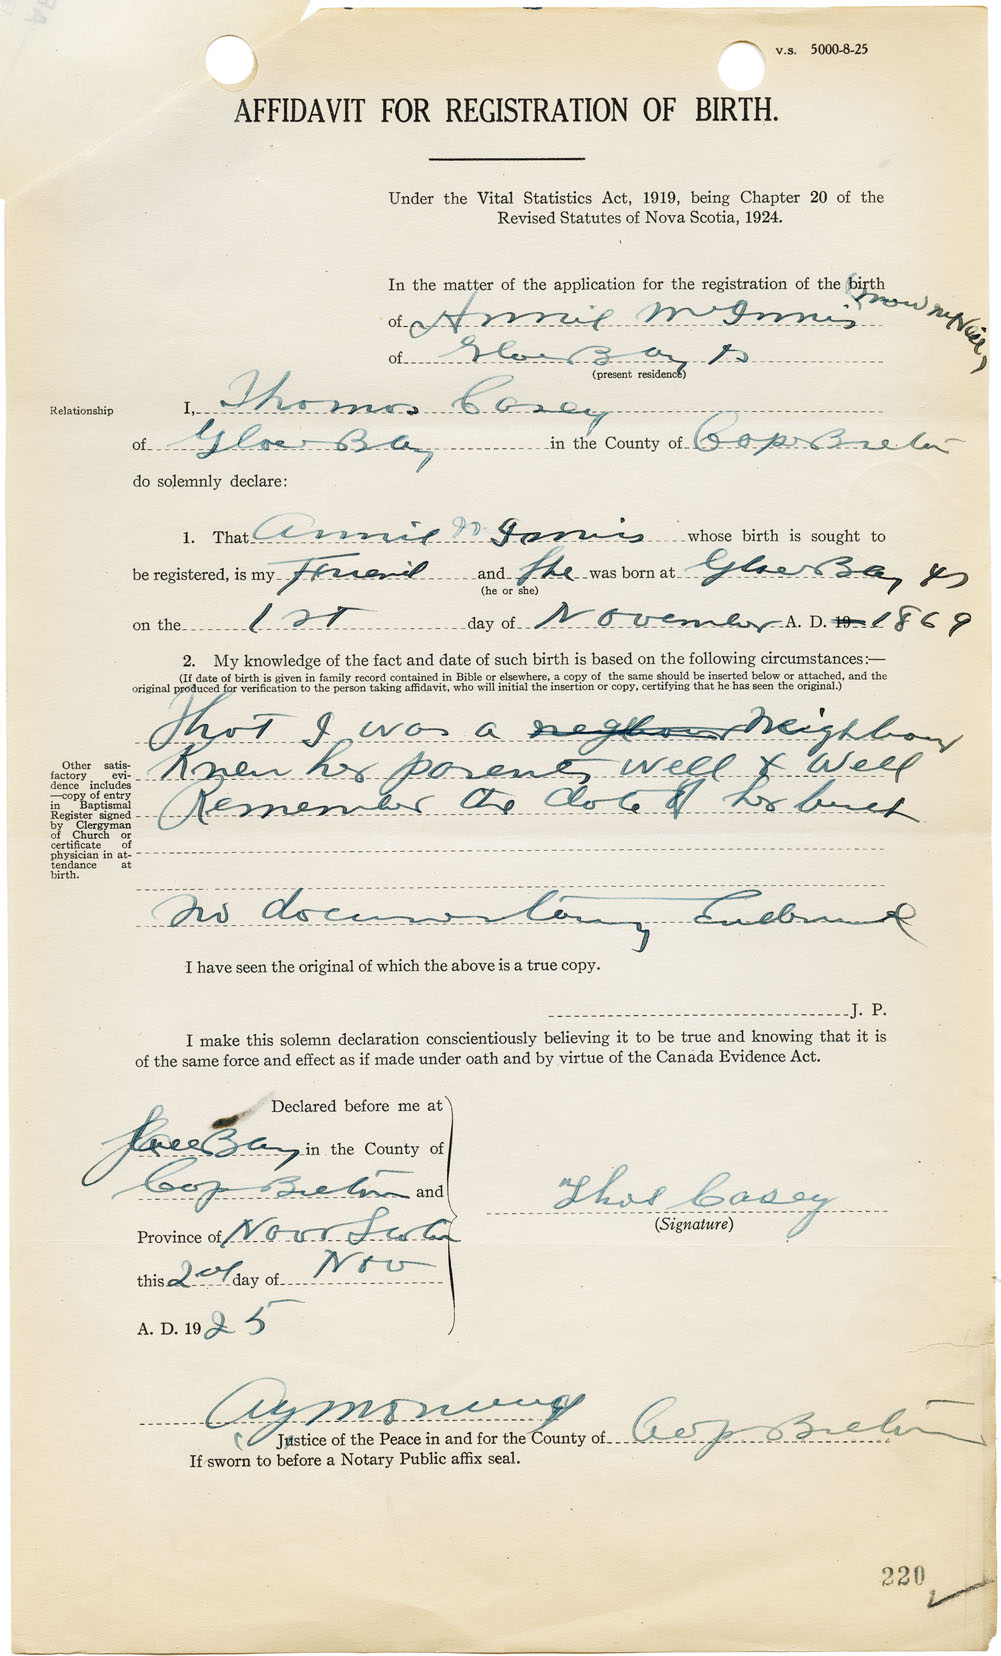 v.s. 5000-8-25
AFFIDAVIT FOR REGISTRATION OF BIRTH.
Under the Vital Statistics Act, 1919, being Chapter 20 of the
Revised Statutes of Nova Scotia, 1924.
In the matter of the application for the registration of the birth
of Annie McInnis (now
of Glace Bay NS
(present residence)
Relationship
I, Thomas Casey
of Glace Bay in the County of Cape Breton
do solemnly declare:
1. That Annie McInnis whose birth is sought to
be registered, is my Friend and She was born at Glace Bay NS
(he or she)
on the 1st day of November A. D. 19 1869
2. My knowledge of the fact and date of such birth is based on the following circumstances:—
(If date of birth is given in family record contained in Bible or elsewhere, a copy of the same should be inserted below or attached, and the
original produced for verification to the person taking affidavit, who will initial the insertion or copy, certifying that he has seen the original.)
That I was a neghbour Neighbour
Knew her parents well & Well
Remember the date of her birth
Other satis-
factory evi-
dence includes
—copy of entry
in Baptismal
Register signed
by Clergyman
of Church or
certificate of
physician in at-
tendance at
birth.
no documentary
I have seen the original of which the above is a true copy.
J. P.
I make this solemn declaration conscientiously believing it to be true and knowing that it is
of the same force and effect as if made under oath and by virtue of the Canada Evidence Act.
Declared before me at
Glace Bay in the County of
Cape Breton and
Province of Nova Scotia
this 2nd day of Nov
A. D. 1925
Thos Casey
(Signature)
Justice of the Peace in and for the County of Cape Breton
If sworn to before a Notary Public affix seal.
220